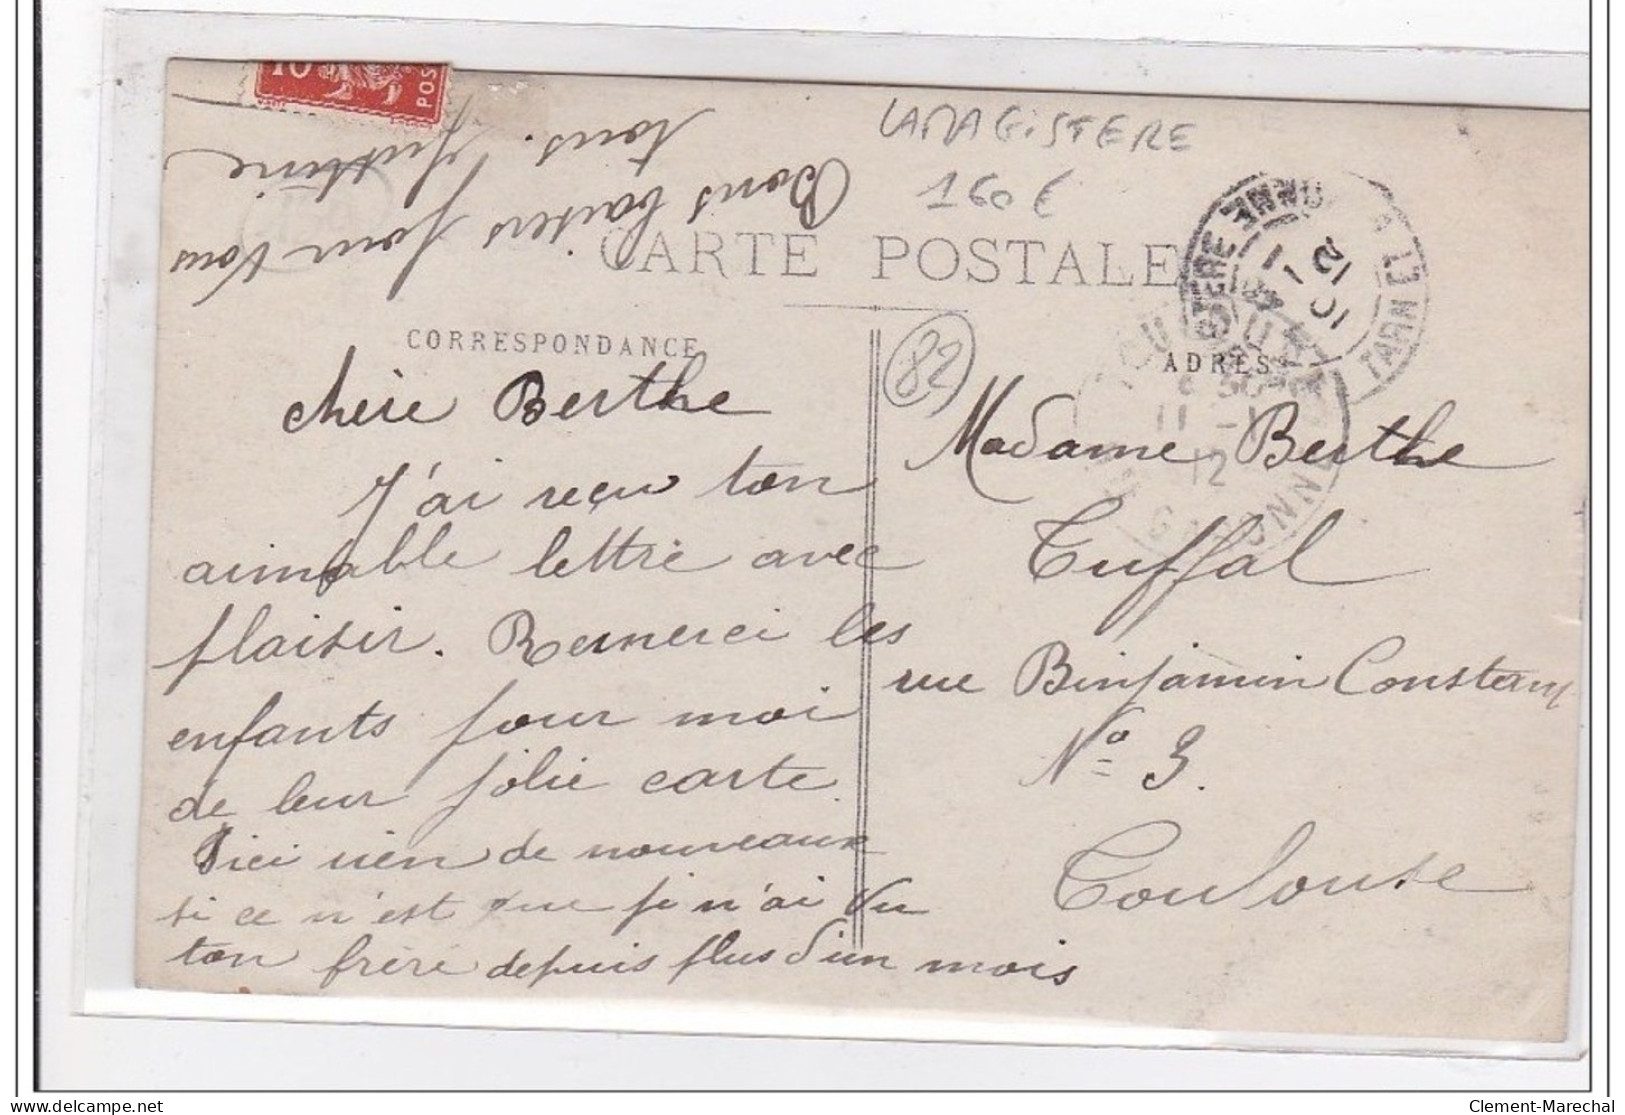 10
POS
LAMAGISTERE
160€
Bons baisers pour vous
tous. Justine
CARTE POSTALE
CORRESPONDANCE
82
ADRES
TARN
12
chère Berthe
J'ai reçu ton
aimable lettre avec
plaisir. Remerci les
enfants pour moi
de leur jolie carte
ici rien de nouveaux
si ce n'est que je n'ai vu
ton frère depuis plus d'un mois
Madame Berthe
Tuffal
rue Binjamin Constant
Nº 3.
Toulouse
Clement-Marechal